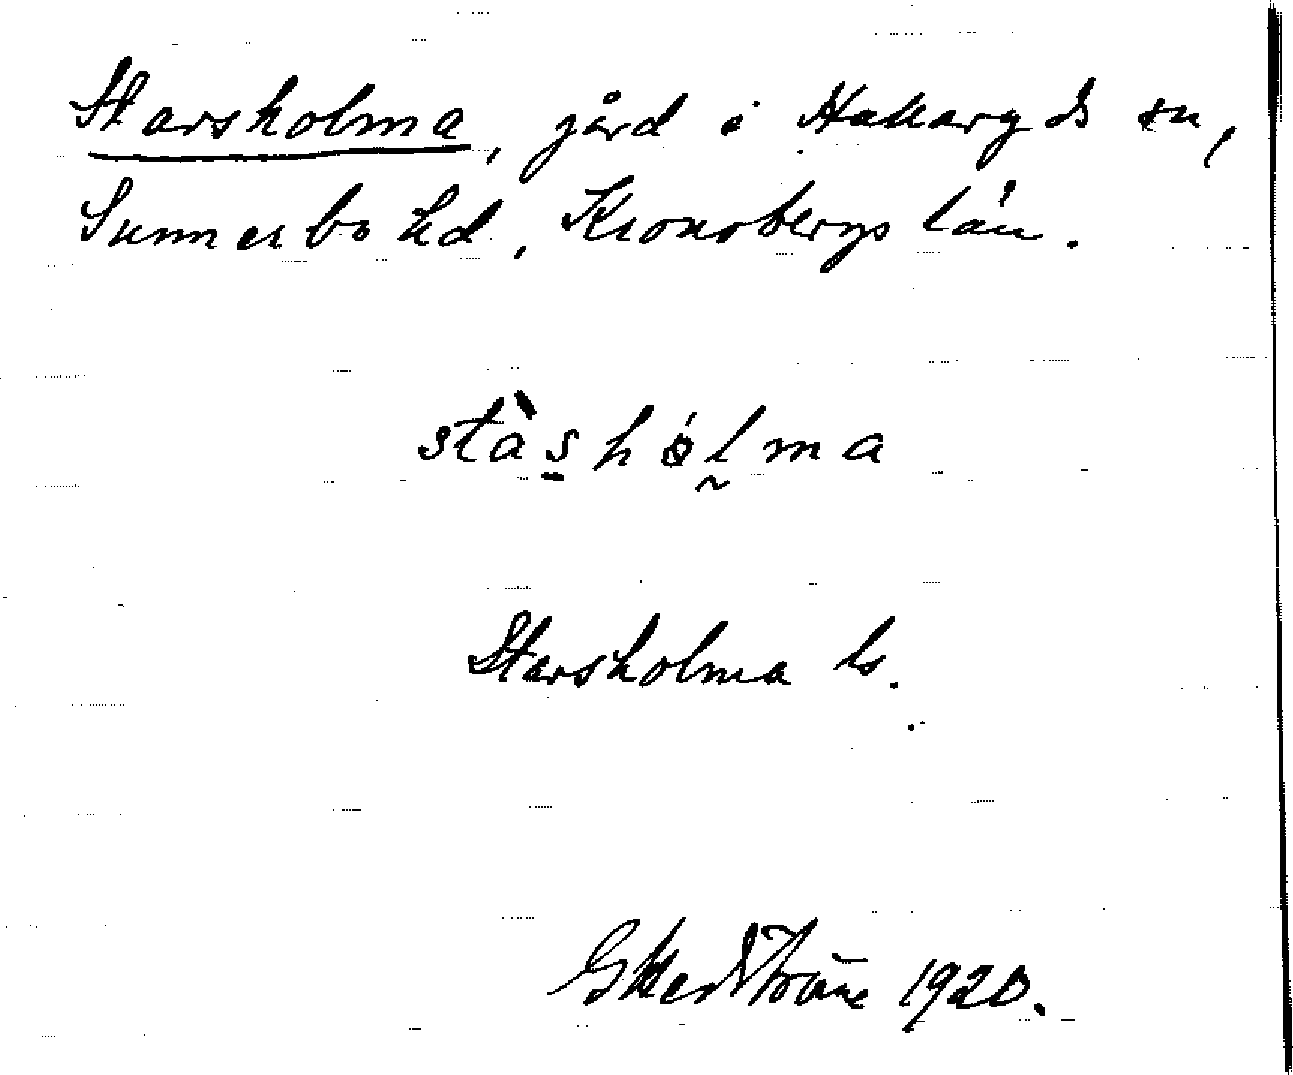 Starsholma, gård i Hallaryds sn,
Sunnerbo hd, Kronobergs län.
stàshólma
Starsholma ls.
1920.